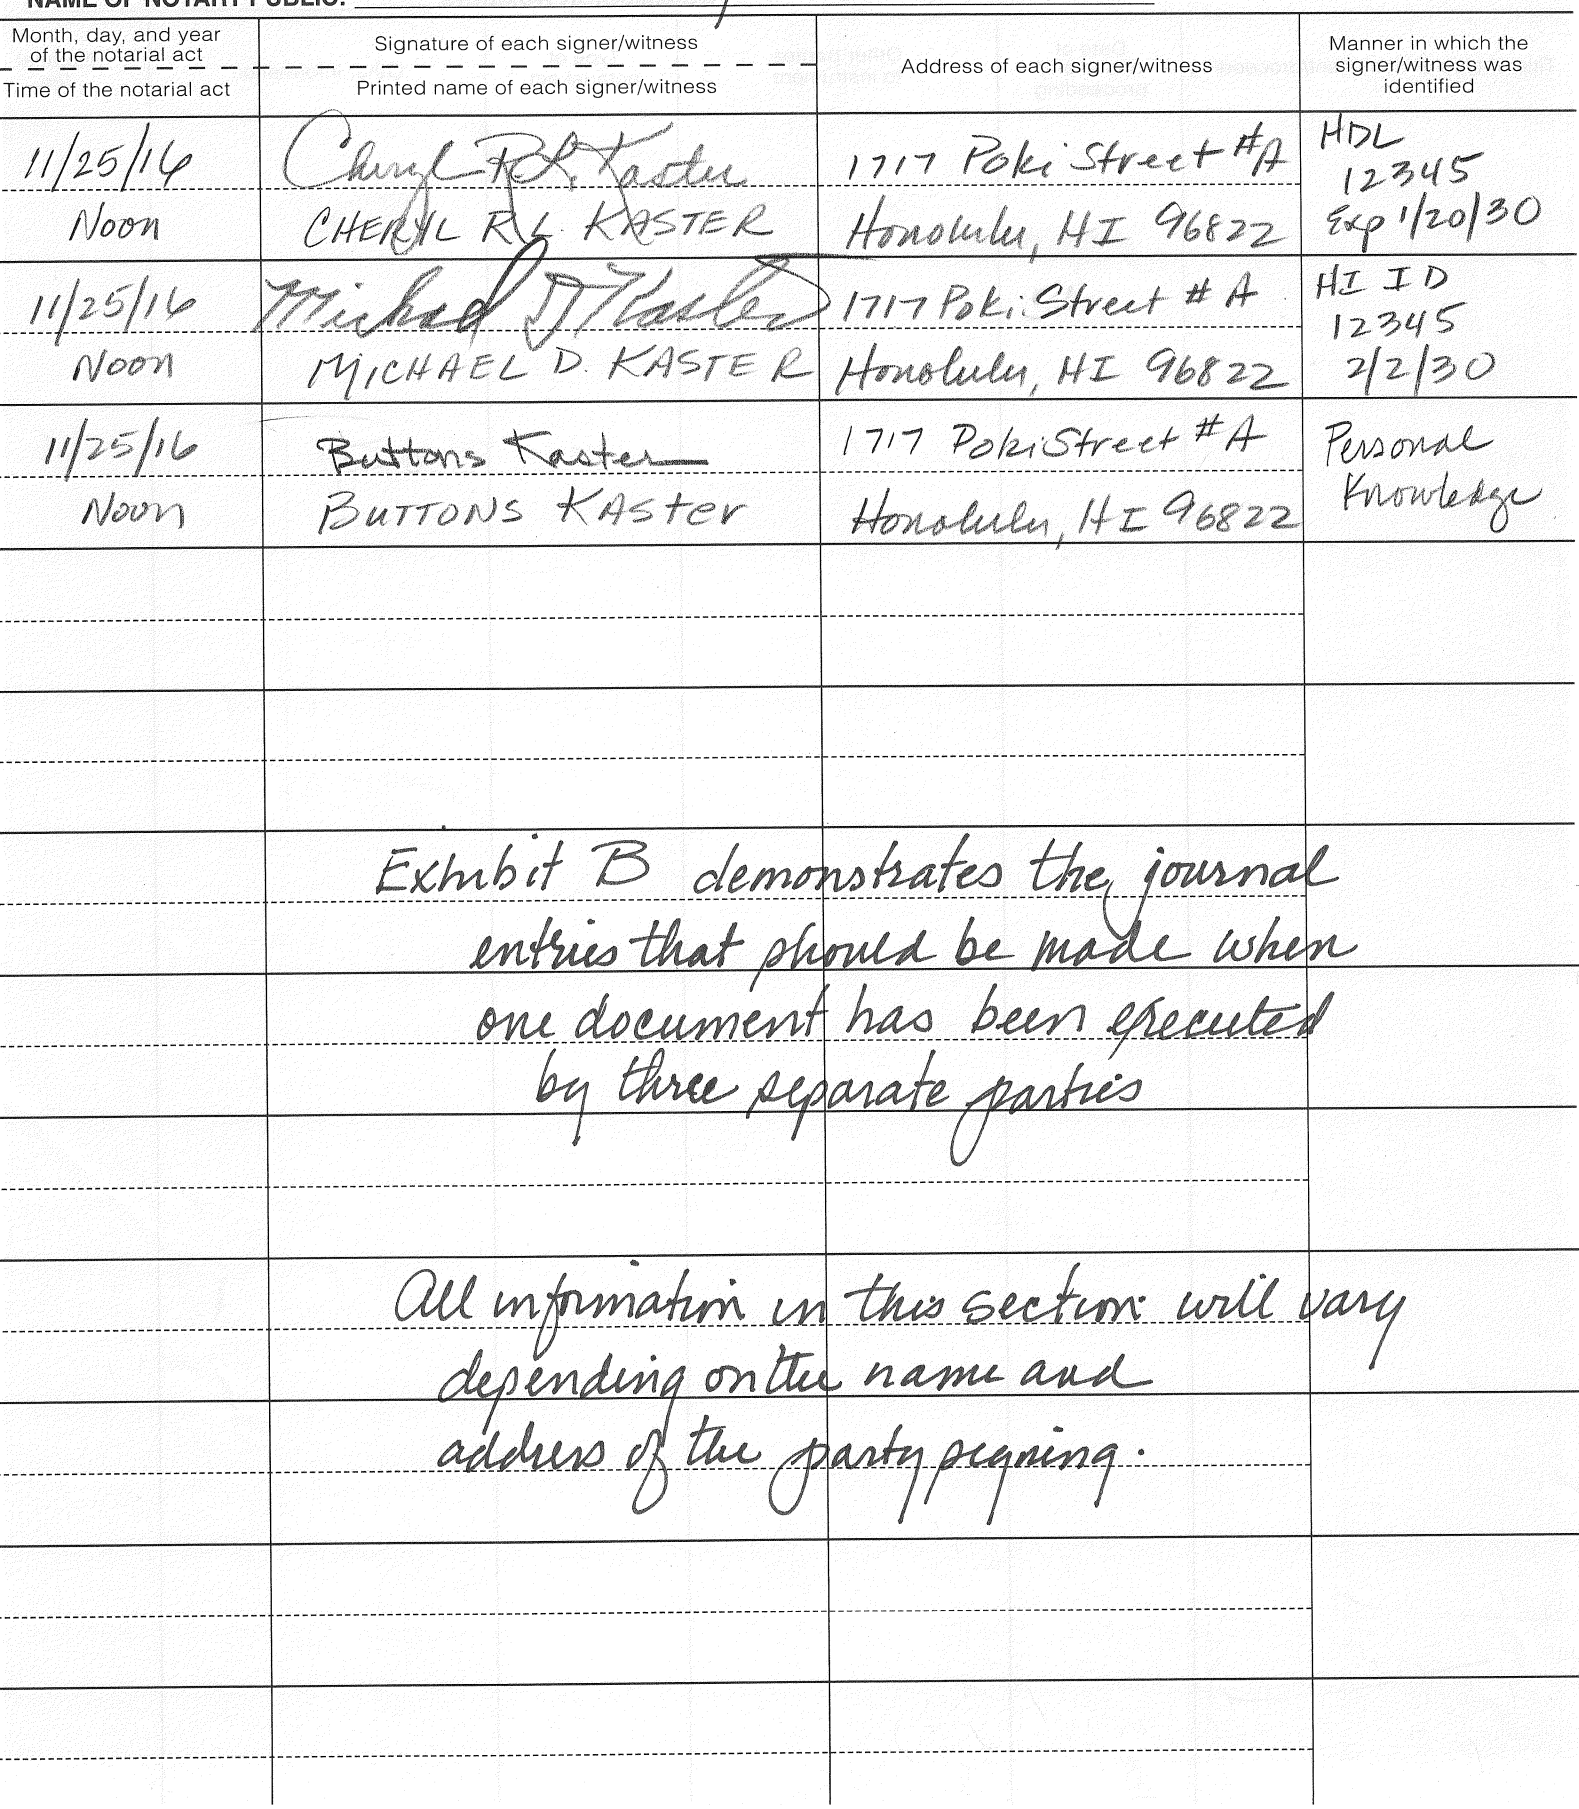 NAME OF NOTARY PUBLIC:
Month, day, and year
of the notarial act
Time of the notarial act
Signature of each signer/witness
Printed name of each signer/witness
Address of each signer/witness
Manner in which the
signer/witness was
identified
11/25/16
Noon
Cheryl R.L. Kaster
CHERYL R.L. KASTER
1717 Poki Street #A
Honolulu, HI 96822
HDL
12345
Exp 1/20/30
11/25/16
Noon
Michael D Kaster
MICHAEL D. KASTER
1717 Poki Street #A
Honolulu, HI 96822
HI ID
12345
2/2/30
11/25/16
Noon
Buttons Kaster
BUTTONS KASter
1717 Poki Street #A
Honolulu, HI 96822
Personal
Knowledge
Exhibit B demonstrates the journal
entries that should be made when
one document has been executed
by three separate parties
All information in this section will vary
depending on the name and
address of the party signing.